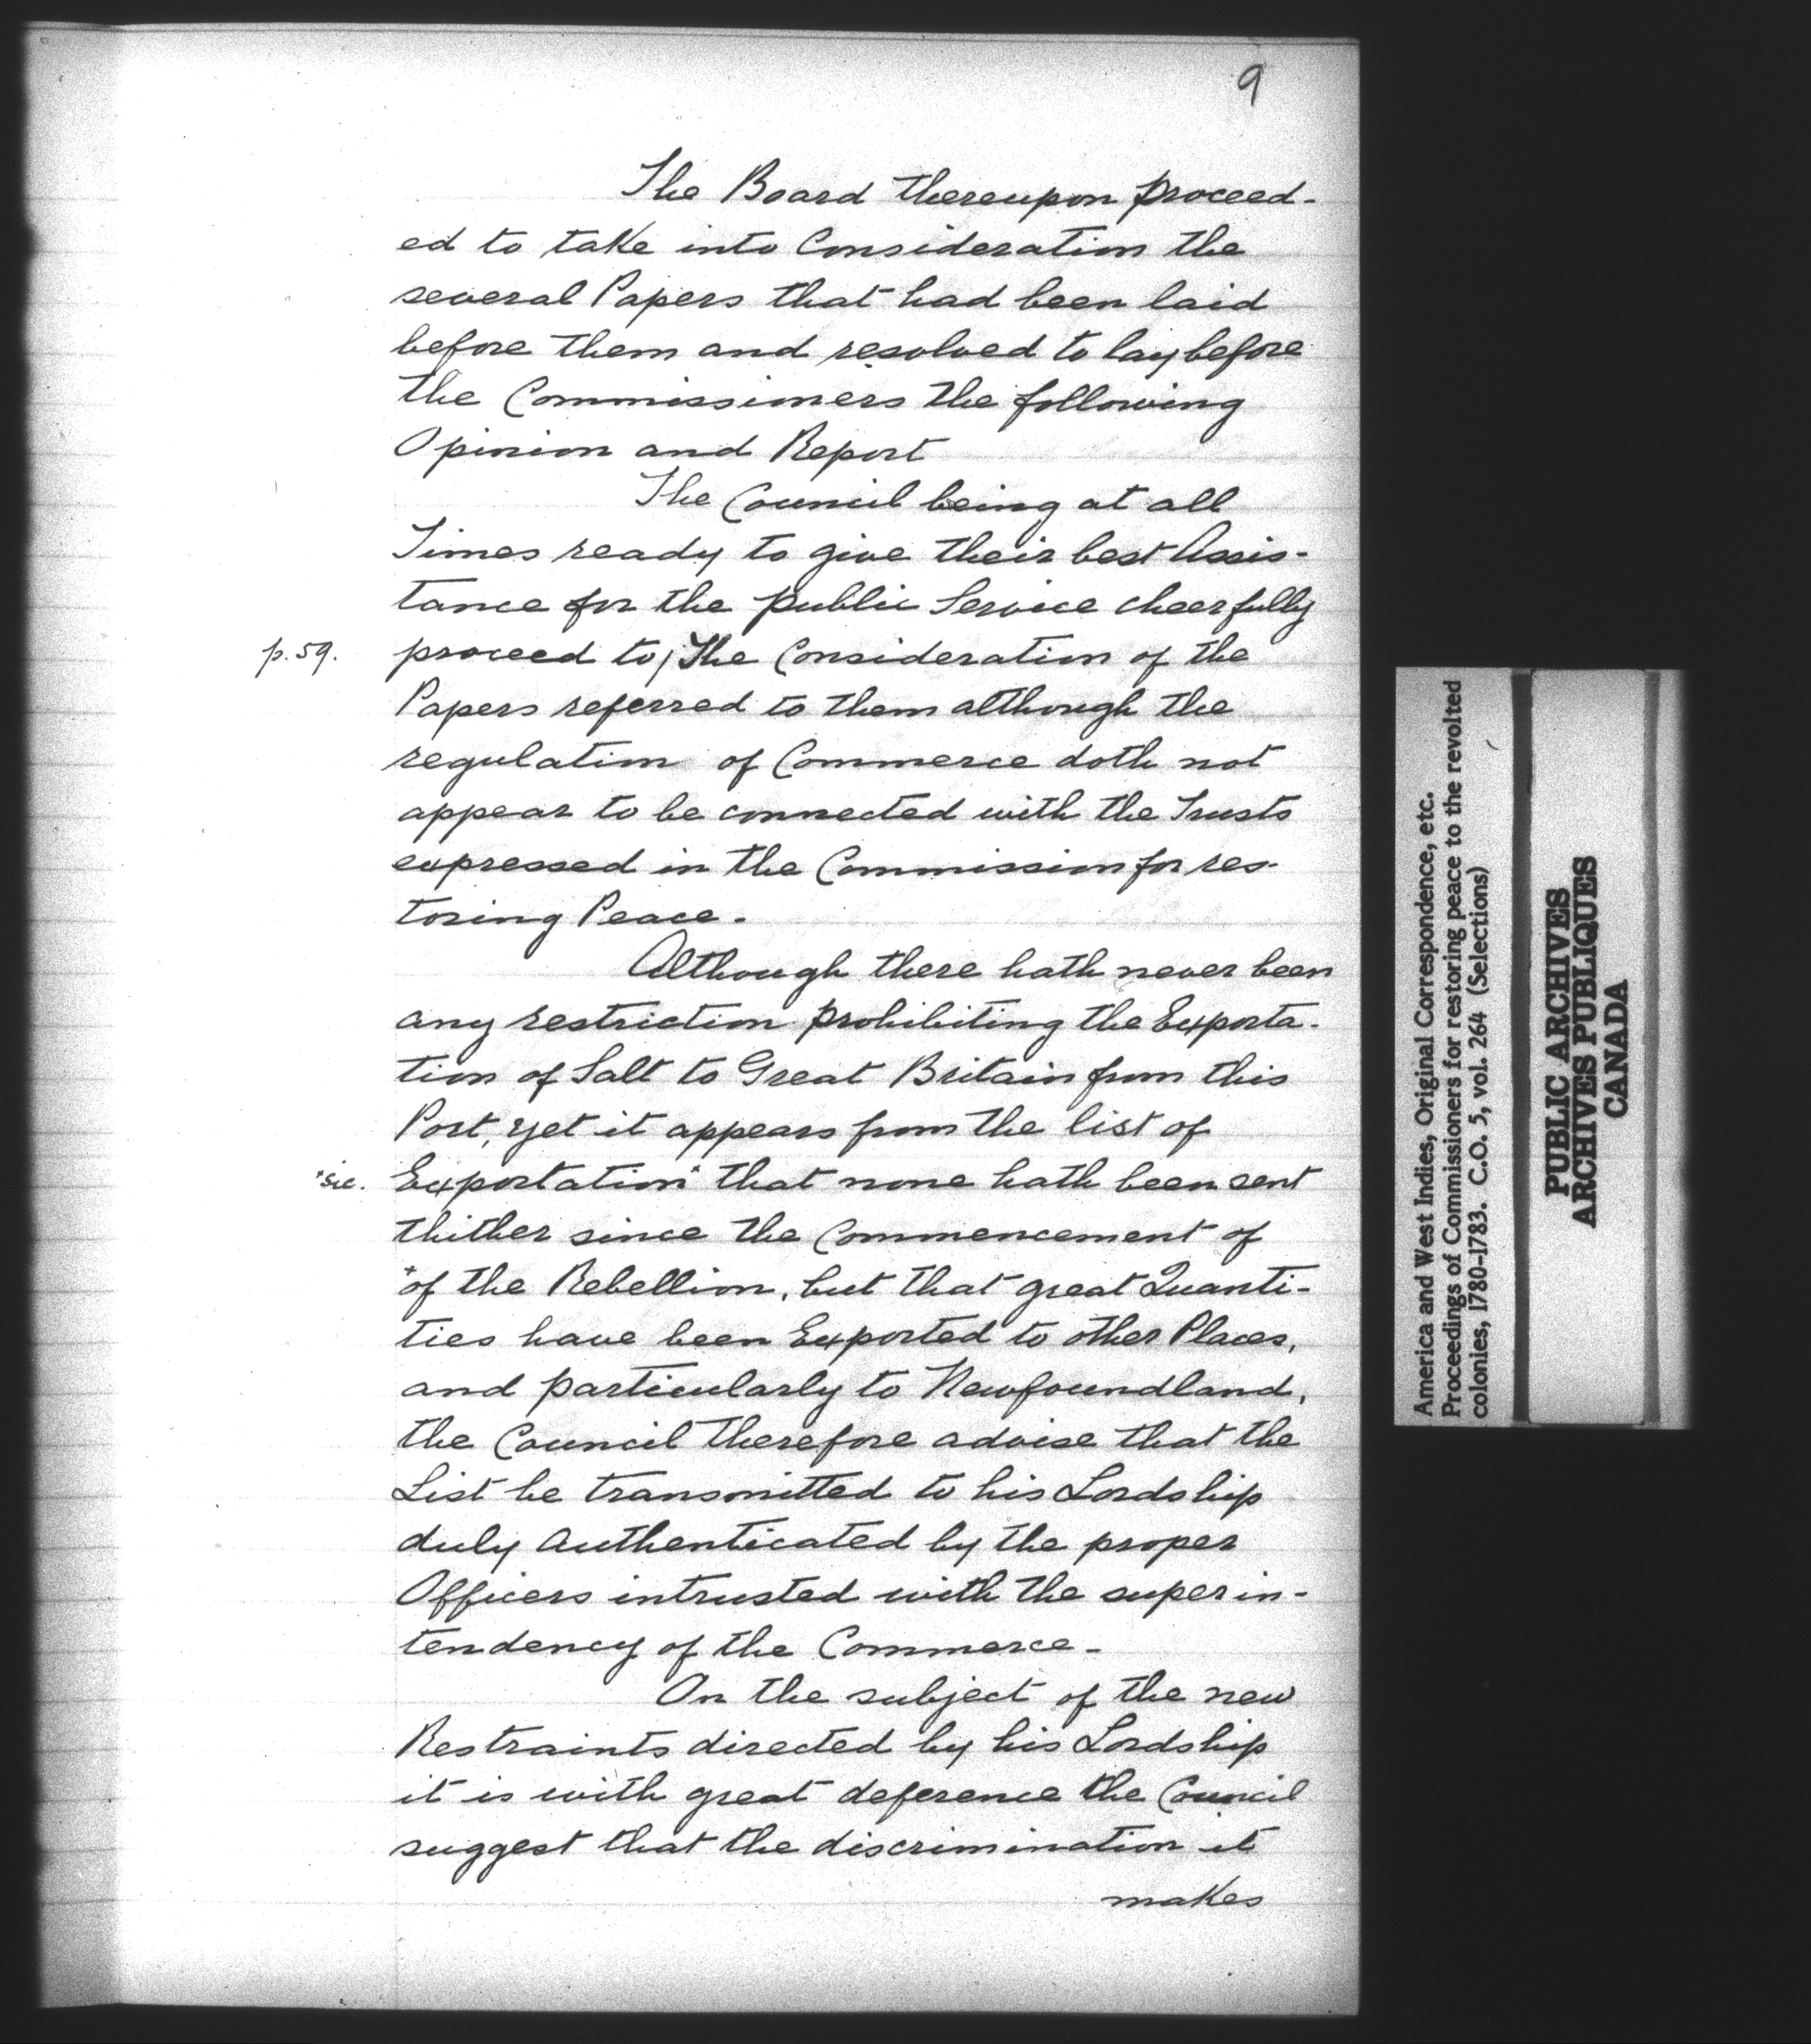 9
The Board thereupon proceed-
ed to take into Consideration the
several Papers that had been laid
before them and resolved to lay before
the Commissioners the following
Opinion and Report
The Council being at all
Times ready to give their best Assis-
tance for the public Service cheerfully
p.59. proceed to/The Consideration of the
Papers referred to them although the
regulation of Commerce doth not
appear to be connected with the Trusts
expressed in the Commission for res-
toring Peace.
Although there hath never been
any restriction prohibiting the Exporta-
tion of Salt to Great Britain from this
Port, yet it appears from the list of
+sic. Exportation+ that none hath been sent
thither since the Commencement of
+of the Rebellion, but that great Quanti-
ties have been Exported to other Places,
and particularly to Newfoundland,
the Council therefore advise that the
List be transmitted to his Lordship
duly Authenticated by the proper
Officers intrusted with the superin-
tendency of the Commerce-
On the subject of the new
Restraints directed by his Lordship
it is with great deference the Council
suggest that the discrimination it
makes
America and West Indies, Original Correspondence, etc.
Proceedings of Commissioners for restoring peace to the revolted
colonies, 1780-1783. C.O. 5, vol. 264 (Selections)
PUBLIC ARCHIVES
ARCHIVES PUBLIQUES
CANADA